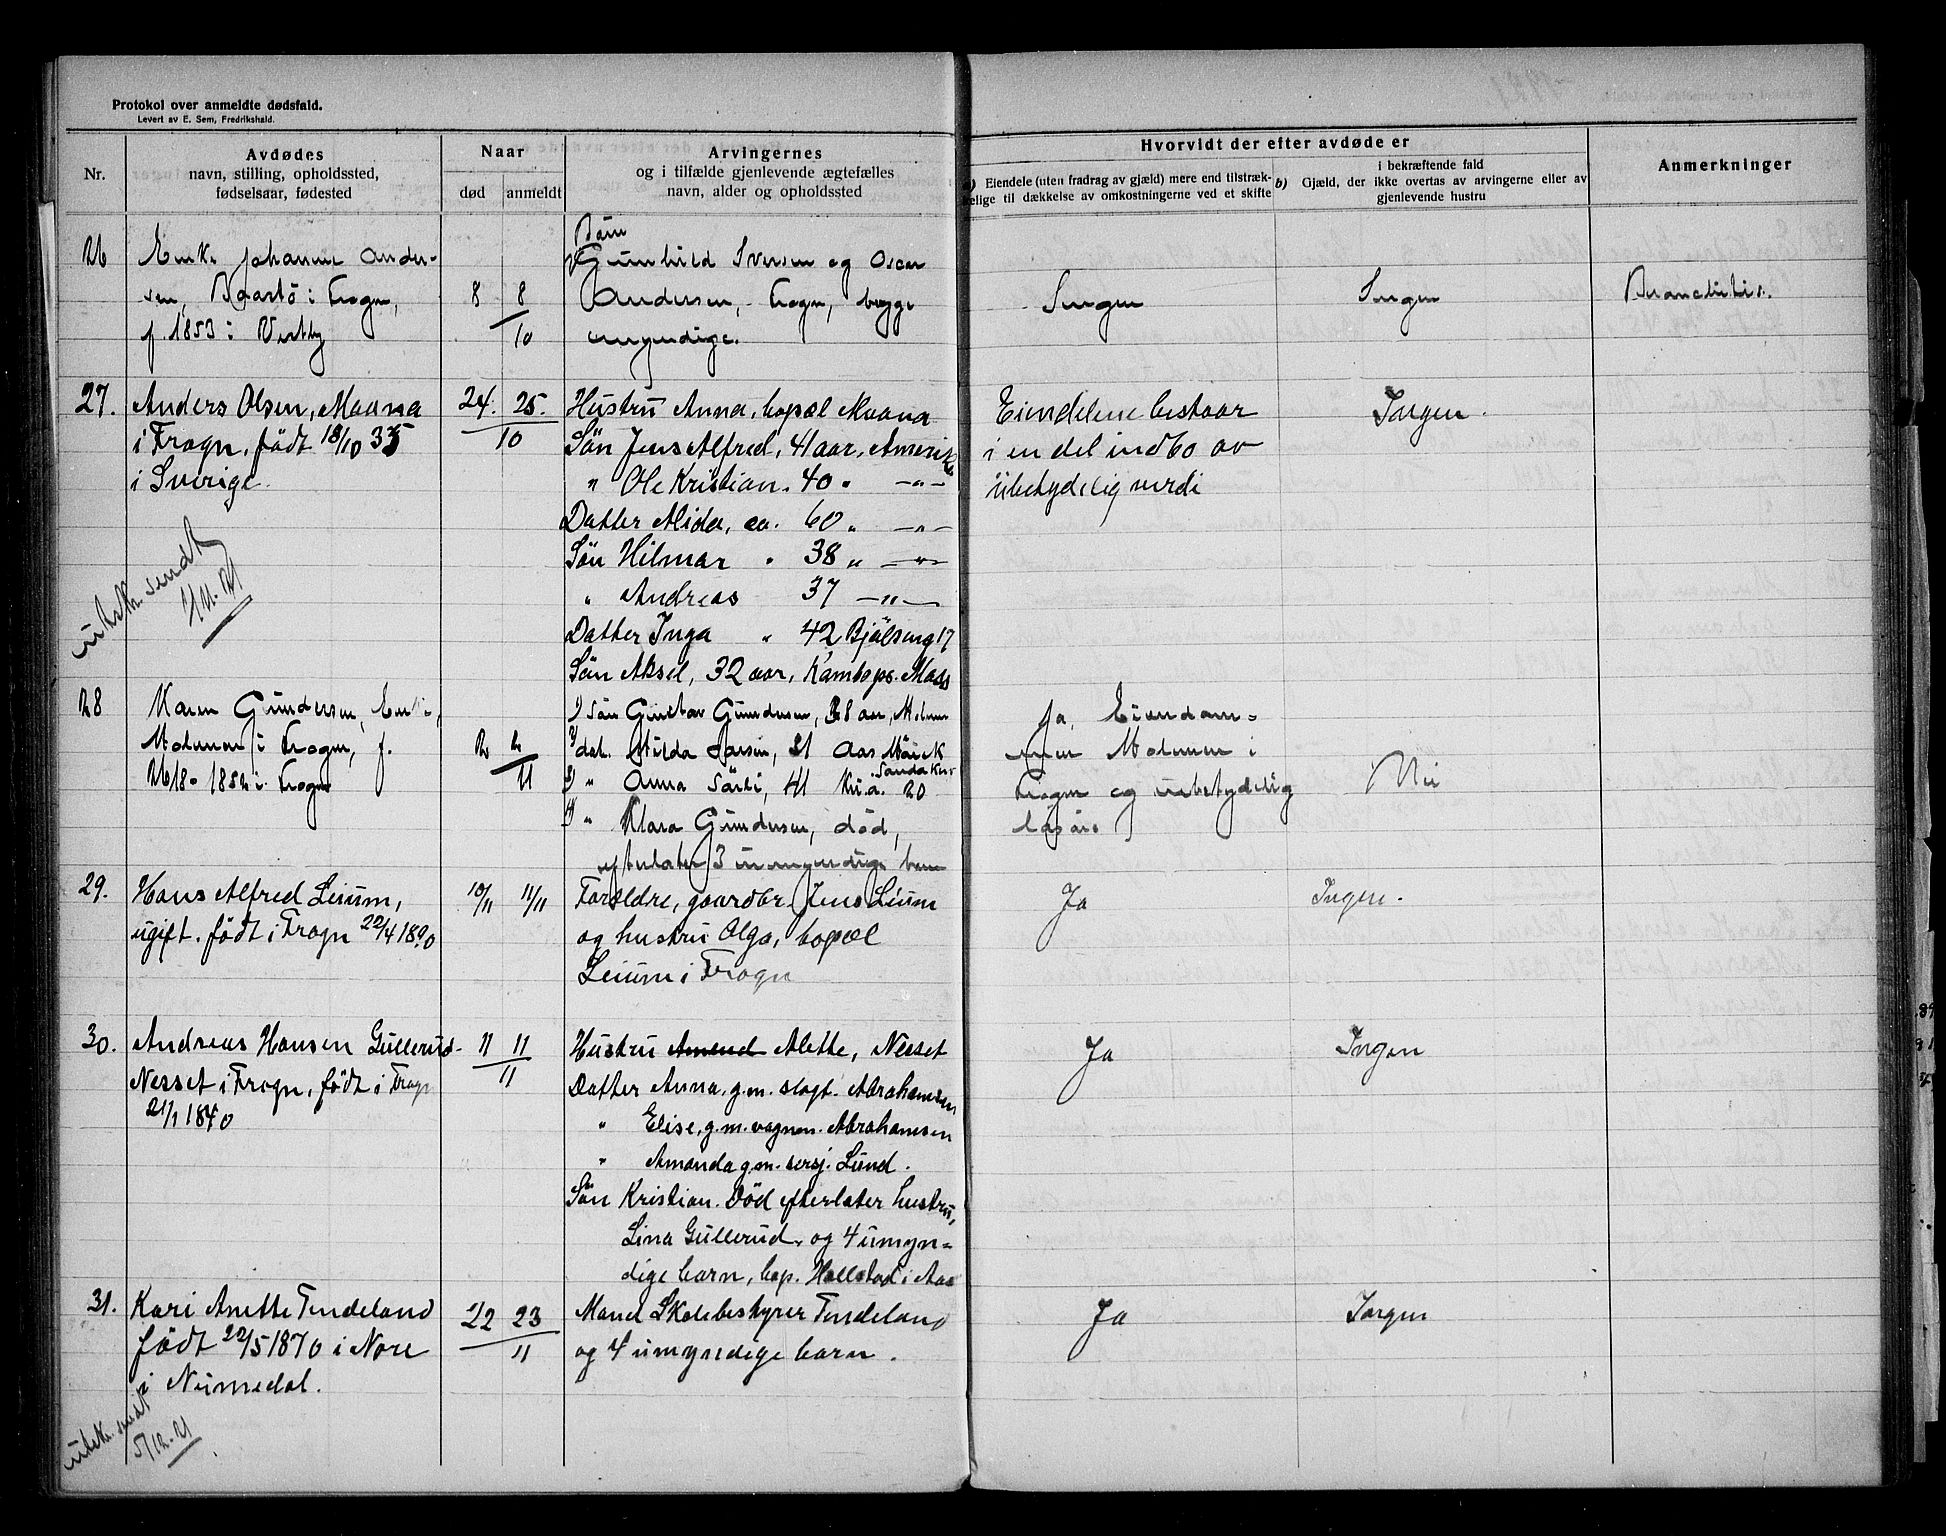 Protokol over anmeldte dødsfald.
Levert av E. Sem, Fredrikshald.
Nr.
Avdødes
navn, stilling, opholdssted,
fødselsaar, fødested
Naar
død
anmeldt
Arvingernes
og i tilfælde gjenlevende ægtefælles
navn, alder og opholdssted
Hvorvidt der efter avdøde er
a) Eiendele (uten fradrag av gjæld) mere end tilstræk-
kelige til dækkelse av omkostningerne ved et skifte
b) i bekræftende fald
Gjæld, der ikke overtas av arvingerne eller av
gjenlevende hustru
Anmerkninger
26
Enke Johanne Ander-
sen, i Frogn,
f. 1853 i Vestby
8 8
10
Børn
Gunhild Iversen og Oscar
Andersen, Frogn, begge
umyndige.
Ingen
Ingen
27.
Anders Olsen, Maana
i Frogn, født 18/10 35
i Sverige.
24. 25.
10
Hustru Anna, bopæl Maana
Søn Jens Alfred, 41 aar, Amerika
" Ole Kristian, 40 " —"—
Datter Alida, ca. 60 " —"—
Søn Hilmar " 38 " —"—
" Andreas 37 —"—
Datter Inga " 42 17
Søn Aksel, 32 aar, Mass
Eiendelene bestaar
i en del indbo av
ubetydelig verdi
Ingen.
utskr. sendt
1/11.21
28
Karen Gundersen, Enke,
i Frogn, f.
26/8-1852 i Frogn
2 2
11
1) Søn Gustav Gundersen, 38 aar,
2) dat. Hilda Larsen, 21 Aas
3) " Anna 41 Kr.a. 20
4) " Klara Gundersen, død,
efterlater 3 umyndige barn
Ja, Eiendom-
men i
Frogn og ubetydelig
løsøre
Nei
29.
Hans Alfred Leium,
ugift. født i Frogn 22/4 1890
10/11 11/11
Forældre, gaardbr. Jens Leium
og hustru Olga, bopæl
Leium i Frogn
Ja
Ingen.
30.
Andreas Hansen Gullerud
Nesset i Frogn, født i Frogn
21/1 1840
11 11
11
Hustru Alette, Nesset
Datter Anna, g.m. slagt. Abrahamsen
" Elise, g.m. vognm. Abrahamsen
" Amanda g.m. sersj. Lund.
Søn Kristian. Død efterlater hustru,
Lina Gullerud, og 4 umyn=
dige barn, bop. Hallstad i Aas
Ja
Ingen
31.
Kari Anette Tendeland
født 22/5 1870 i Nore
i Numedal.
22 23
11
Mand Skolebestyrer Tendeland
og 4 umyndige barn.
Ja
Ingen
utskr. sendt
5/12.21